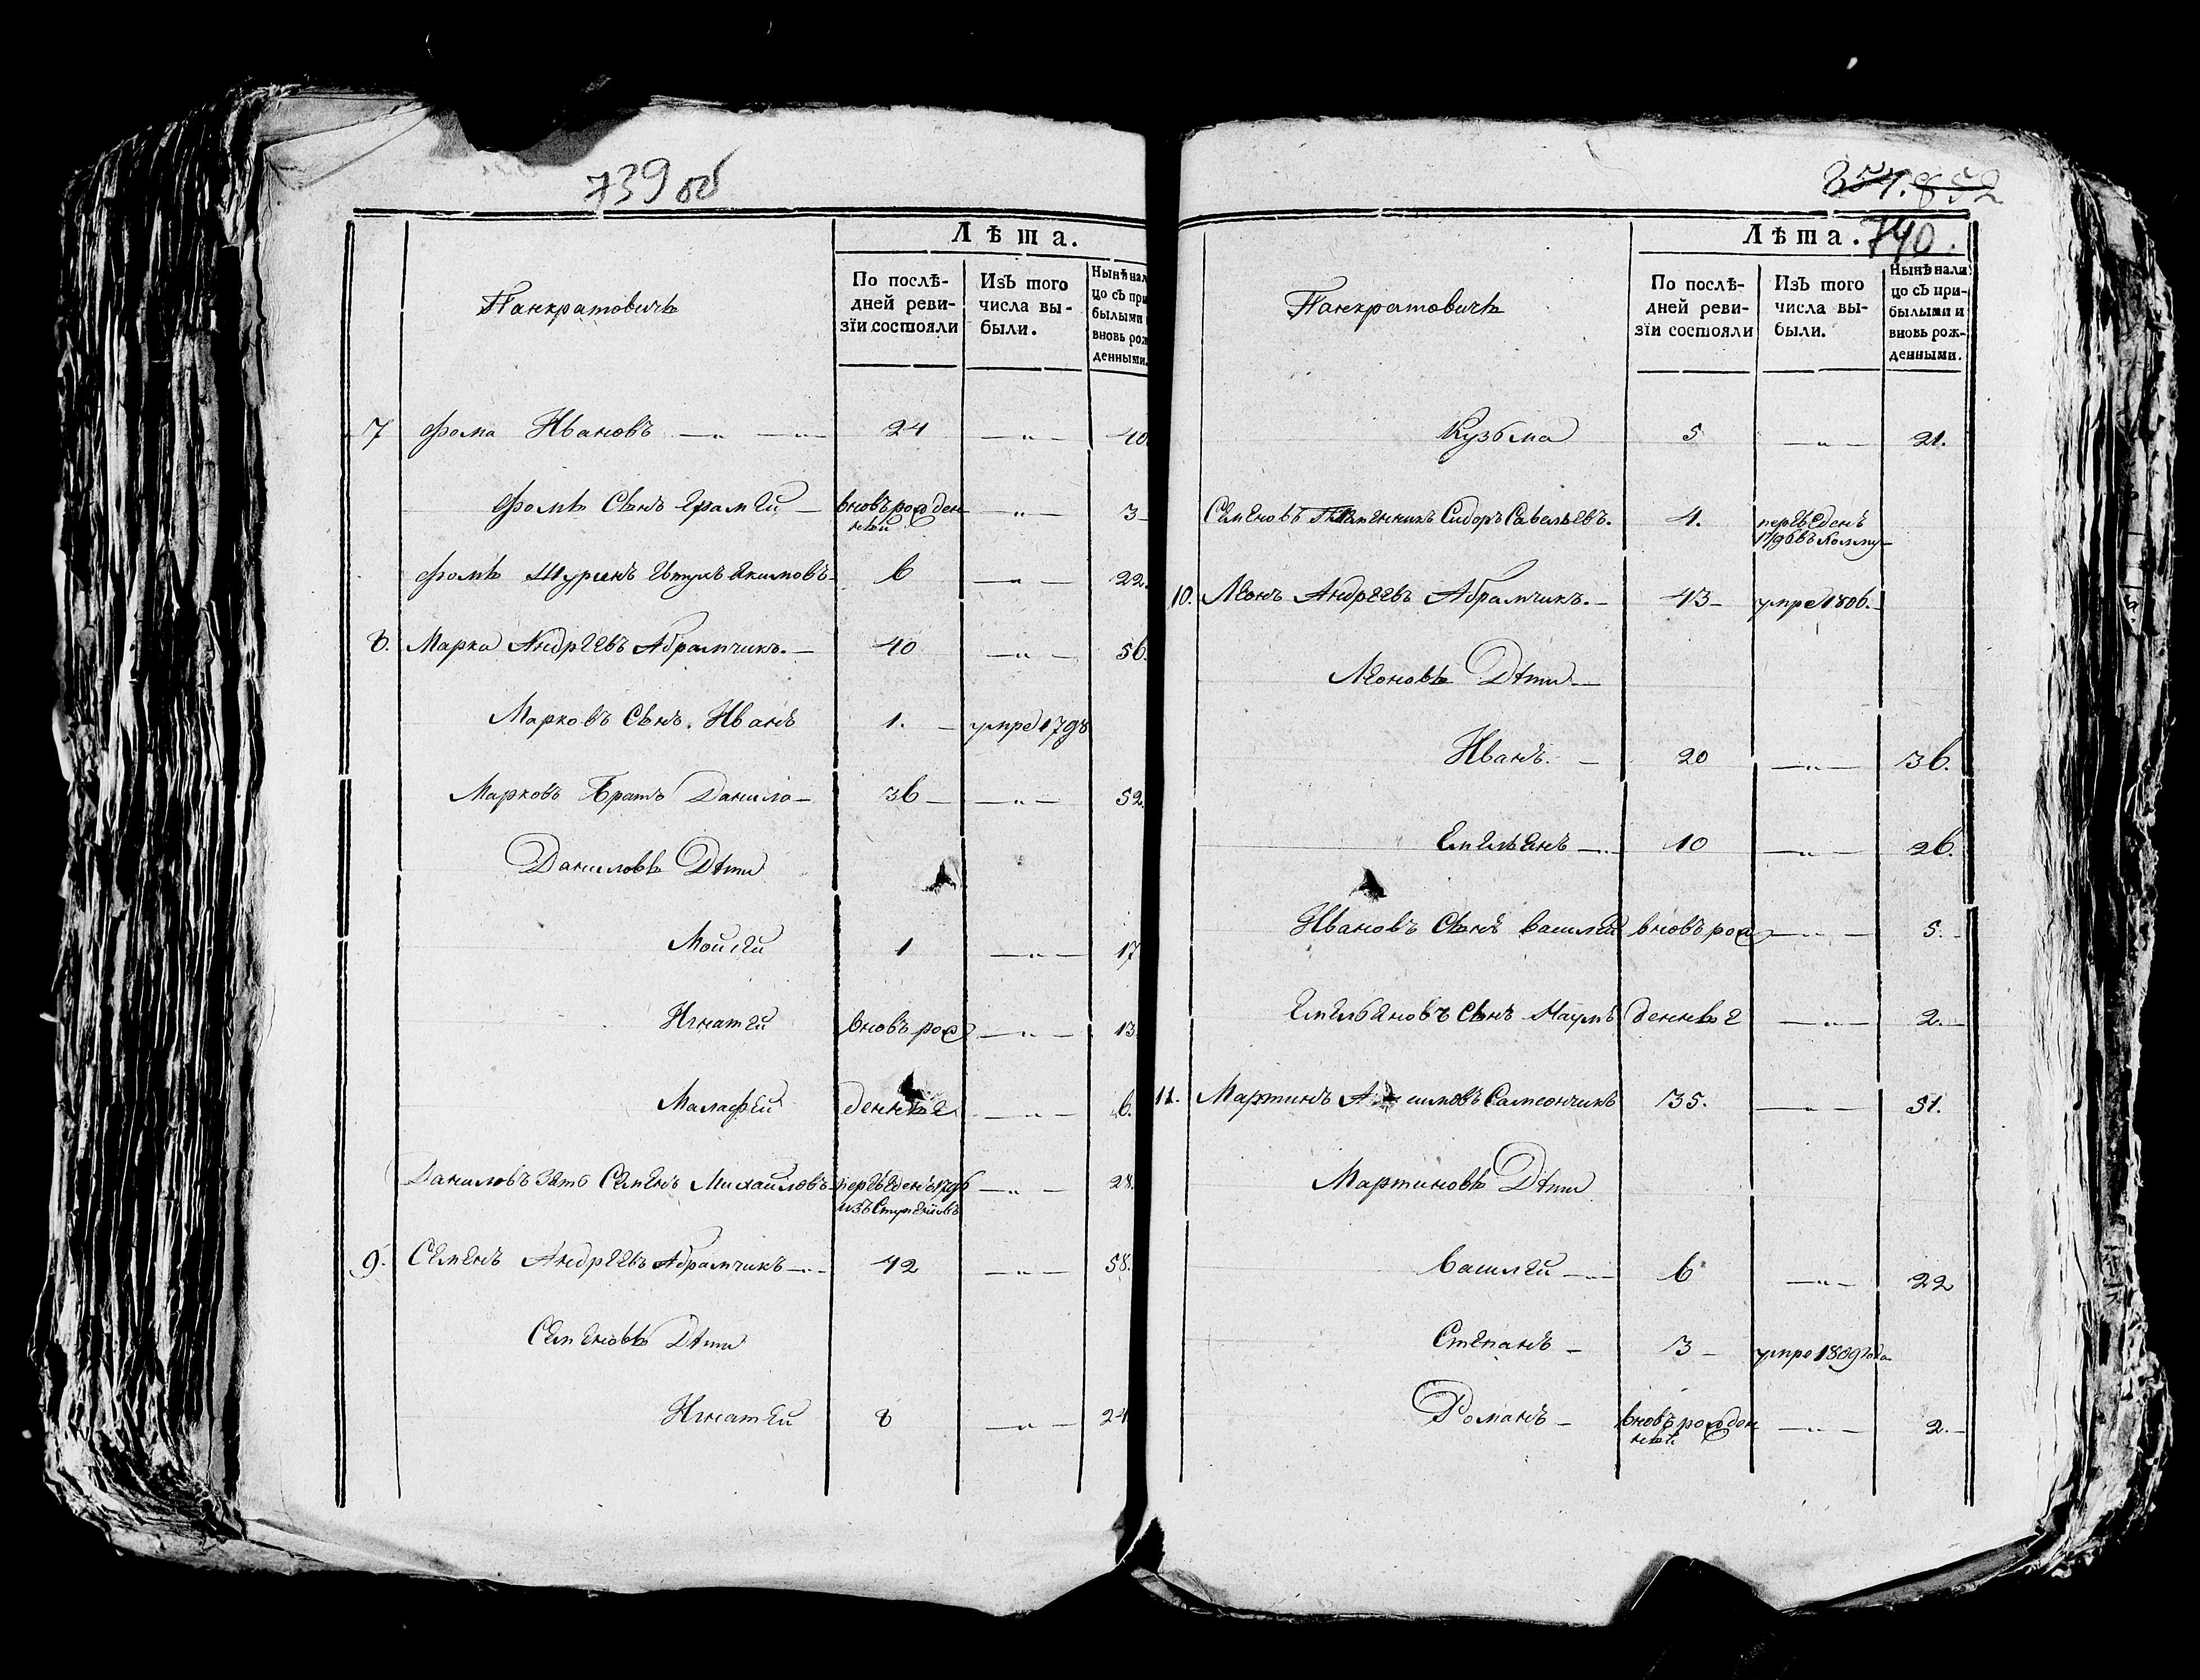 739 об
Лѣта.
Панкратовичѣ
По послѣ-
дней реви-
зіи состояли
Изъ того
числа вы-
были.
Нынѣ нал
цо съ при
былыми
вновь рож
денными.
7 Фома Ивановъ 24 — „ — 40
Фомы Сынъ Ерамей вновь рожден
ный — „ — 3
Фомы Шуринъ Якимовъ 6 — „ — 22.
8. Марка Андреевъ Абрамчикъ. 40 — „ — 56.
Марковъ Сынъ Иванъ 1. умре 1798
Марковъ Братъ Данило 36 — „ — 52.
Даниловы Дѣти
Мойсей 1 — „ — 17
Игнатей вновь рож — „ — 13
Малафей денные — „ — 6.
Даниловъ Зять Семенъ Михайловъ переведенъ 1796
изъ — „ — 28.
9. Семенъ Андреевъ Абрамчикъ 42 — „ — 58.
Семеновы Дѣти
Игнатей 8 — „ — 24
851. 852
740.
Лѣта.
Панкратовичѣ
По послѣ-
дней реви-
зіи состояли
Изъ того
числа вы-
были.
Нынѣ нали
цо съ при-
былыми и
вновь рож-
денными.
Кузьма 5 — „ — 21.
Семеновъ Племенникъ Сидоръ Савельевъ. 4. переведенъ
1796 въ
10. Леонъ Андреевъ Абрамчикъ. 43 умре 1806.
Леоновы Дѣти
Иванъ. 20 — „ — 36.
Емельянъ 10 — „ — 26.
Ивановъ Сынъ Василей вновь рож — „ — 5.
Емельяновъ Сынъ Наумъ денные — „ — 2.
11. Мартинъ Самсончикъ 35. — „ — 51.
Мартиновы Дѣти
Василей 6 — „ — 22
Степанъ 3 умре 1809 года
Романъ вновь рожден
ный — „ — 2.